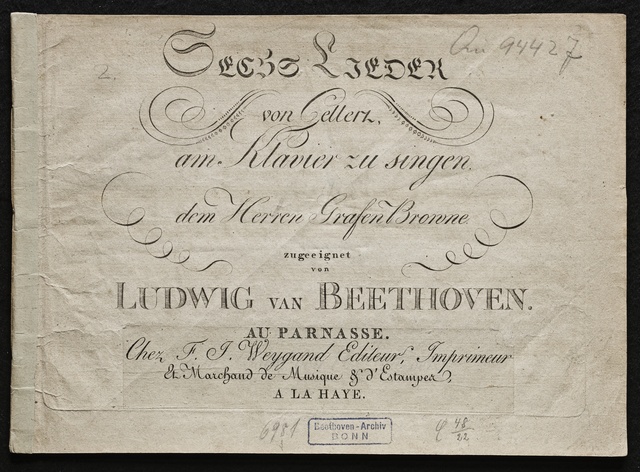 2.
An 94427
SECHS LIEDER
von Gellert,
am Klavier zu singen.
dem Herren Grafen Browne.
zugeeignet
von
LUDWIG VAN BEETHOVEN.
AU PARNASSE.
Chez F. J. Weygand Editeur, Imprimeur
Et Marchand de Musique & d'Estampes,
A LA HAYE.
6981
Beethoven-Archiv
BONN
48
22